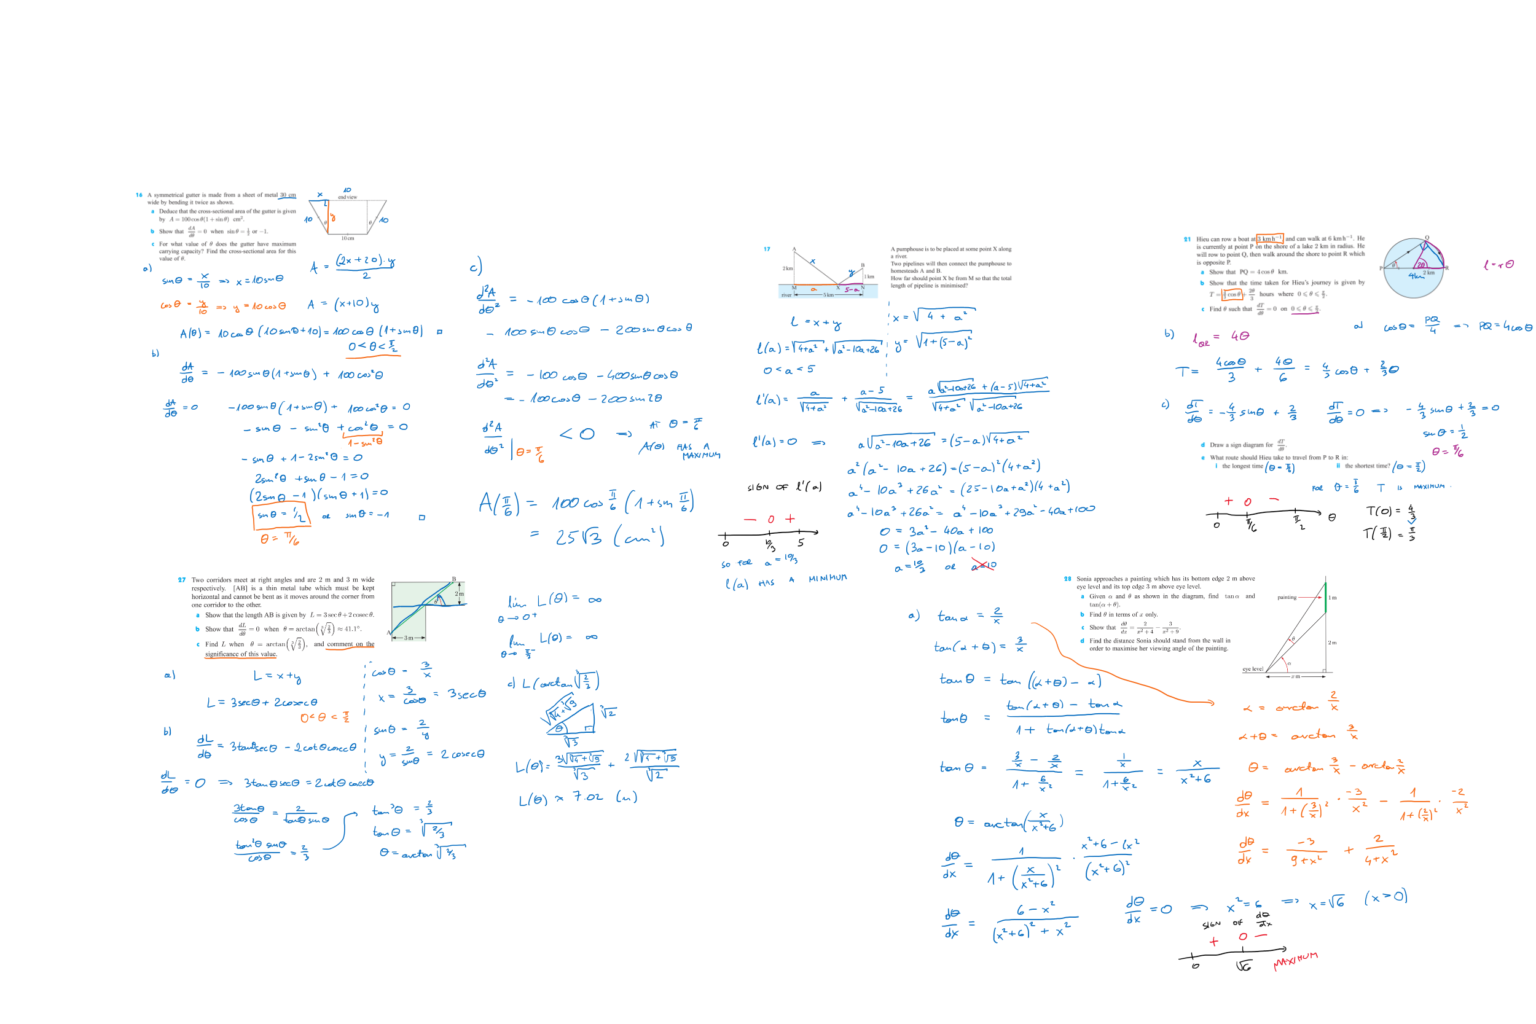 16 A symmetrical gutter is made from a sheet of metal 30 cm
wide by bending it twice as shown.
a Deduce that the cross-sectional area of the gutter is given
by A = 100 cos θ(1 + sin θ) cm².
b Show that dA/dθ = 0 when sin θ = ½ or −1.
c For what value of θ does the gutter have maximum
carrying capacity? Find the cross-sectional area for this
value of θ.
10
x
end view
10
y
θ
θ
10
10 cm
a)
sinθ = x/10 ⇒ x = 10sinθ
A = (2x+20)·y/2
cosθ = y/10 ⇒ y = 10cosθ
A = (x+10)y
A(θ) = 10cosθ(10sinθ+10) = 100cosθ(1+sinθ) □
0<θ<π/2
b)
dA/dθ = −100sinθ(1+sinθ) + 100cos²θ
dA/dθ = 0
−100sinθ(1+sinθ) + 100cos²θ = 0
−sinθ − sin²θ + cos²θ = 0
1−sin²θ
−sinθ + 1 − 2sin²θ = 0
2sin²θ + sinθ − 1 = 0
(2sinθ −1)(sinθ+1) = 0
sinθ = 1/2 or sinθ = −1 □
θ = π/6
c)
d²A/dθ² = −100cosθ(1+sinθ)
− 100sinθcosθ − 200sinθcosθ
d²A/dθ² = −100cosθ − 400sinθcosθ
= −100cosθ − 200sin2θ
d²A/dθ² | θ=π/6 < 0 ⇒ AT θ = π/6
A(θ) HAS A
MAXIMUM
A(π/6) = 100cos π/6 (1+sin π/6)
= 25√3 (cm²)
17
A
2 km
x
y
B
1 km
M
a
X
5−a
N
river
5 km
A pumphouse is to be placed at some point X along
a river.
Two pipelines will then connect the pumphouse to
homesteads A and B.
How far should point X be from M so that the total
length of pipeline is minimised?
L = x+y
x = √(4+a²)
l(a) = √(4+a²) + √(a²−10a+26)
y = √(1+(5−a)²)
0<a<5
l'(a) = a/√(4+a²) + (a−5)/√(a²−10a+26) = (a√(a²−10a+26) + (a−5)√(4+a²))/(√(4+a²) √(a²−10a+26))
l'(a) = 0 ⇒ a√(a²−10a+26) = (5−a)√(4+a²)
a²(a²−10a+26) = (5−a)²(4+a²)
a⁴−10a³+26a² = (25−10a+a²)(4+a²)
a⁴−10a³+26a² = a⁴−10a³+29a²−40a+100
0 = 3a²−40a+100
0 = (3a−10)(a−10)
a = 10/3 or a=10
SIGN OF l'(a)
− 0 +
0 10/3 5
SO FOR a = 10/3
l(a) HAS A MINIMUM
21 Hieu can row a boat at 3 km h⁻¹ and can walk at 6 km h⁻¹. He
is currently at point P on the shore of a lake 2 km in radius. He
will row to point Q, then walk around the shore to point R which
is opposite P.
a Show that PQ = 4 cos θ km.
b Show that the time taken for Hieu's journey is given by
T = 4/3 cos θ + 2θ/3 hours where 0 ⩽ θ ⩽ π/2.
c Find θ such that dT/dθ = 0 on 0 ⩽ θ ⩽ π/2.
Q
P
θ
2θ
2 km
R
4km
l = rθ
a) cosθ = PQ/4 ⇒ PQ = 4cosθ
b) l_QR = 4θ
T = 4cosθ/3 + 4θ/6 = 4/3 cosθ + 2/3 θ
c) dT/dθ = −4/3 sinθ + 2/3
dT/dθ = 0 ⇒ −4/3 sinθ + 2/3 = 0
sinθ = 1/2
θ = π/6
d Draw a sign diagram for dT/dθ.
e What route should Hieu take to travel from P to R in:
i the longest time (θ = π/6) ii the shortest time? (θ = π/2)
FOR θ = π/6 T IS MAXIMUM.
+ 0 −
0 π/6 π/2 θ
T(0) = 4/3
T(π/2) = π/3
27 Two corridors meet at right angles and are 2 m and 3 m wide
respectively. [AB] is a thin metal tube which must be kept
horizontal and cannot be bent as it moves around the corner from
one corridor to the other.
a Show that the length AB is given by L = 3 sec θ + 2 cosec θ.
b Show that dL/dθ = 0 when θ = arctan(∛(2/3)) ≈ 41.1°.
c Find L when θ = arctan(∛(2/3)), and comment on the
significance of this value.
B
θ
2 m
A
3 m
a)
L = x+y
L = 3secθ + 2cosecθ
0<θ<π/2
cosθ = 3/x
x = 3/cosθ = 3secθ
sinθ = 2/y
y = 2/sinθ = 2cosecθ
b)
dL/dθ = 3tanθsecθ − 2cotθcosecθ
dL/dθ = 0 ⇒ 3tanθsecθ = 2cotθcosecθ
3tanθ/cosθ = 2/(tanθsinθ)
tan²θ sinθ/cosθ = 2/3
tan³θ = 2/3
tanθ = ∛(2/3)
θ = arctan ∛(2/3)
lim θ→0⁺ L(θ) = ∞
lim θ→π/2⁻ L(θ) = ∞
c) L(arctan ∛(2/3))
√(∛4+∛9)
∛2
θ
∛3
L(θ) = 3√(∛4+∛9)/∛3 + 2√(∛4+∛9)/∛2
L(θ) ≈ 7.02 (m)
28 Sonia approaches a painting which has its bottom edge 2 m above
eye level and its top edge 3 m above eye level.
a Given α and θ as shown in the diagram, find tan α and
tan(α + θ).
b Find θ in terms of x only.
c Show that dθ/dx = 2/(x²+4) − 3/(x²+9).
d Find the distance Sonia should stand from the wall in
order to maximise her viewing angle of the painting.
painting
1 m
2 m
θ
α
eye level
x m
a)
tanα = 2/x
tan(α+θ) = 3/x
tanθ = tan((α+θ) − α)
tanθ = (tan(α+θ) − tanα)/(1 + tan(α+θ)tanα)
tanθ = (3/x − 2/x)/(1+6/x²) = (1/x)/(1+6/x²) = x/(x²+6)
θ = arctan(x/(x²+6))
dθ/dx = 1/(1+(x/(x²+6))²) · (x²+6−(x²/(x²+6)²
dθ/dx = (6−x²)/((x²+6)²+x²)
α = arctan 2/x
α+θ = arctan 3/x
θ = arctan 3/x − arctan 2/x
dθ/dx = 1/(1+(3/x)²) · −3/x² − 1/(1+(2/x)²) · −2/x²
dθ/dx = −3/(9+x²) + 2/(4+x²)
dθ/dx = 0 ⇒ x² = 6 ⇒ x = √6 (x>0)
SIGN OF dθ/dx
+ 0 −
0 √6 MAXIMUM